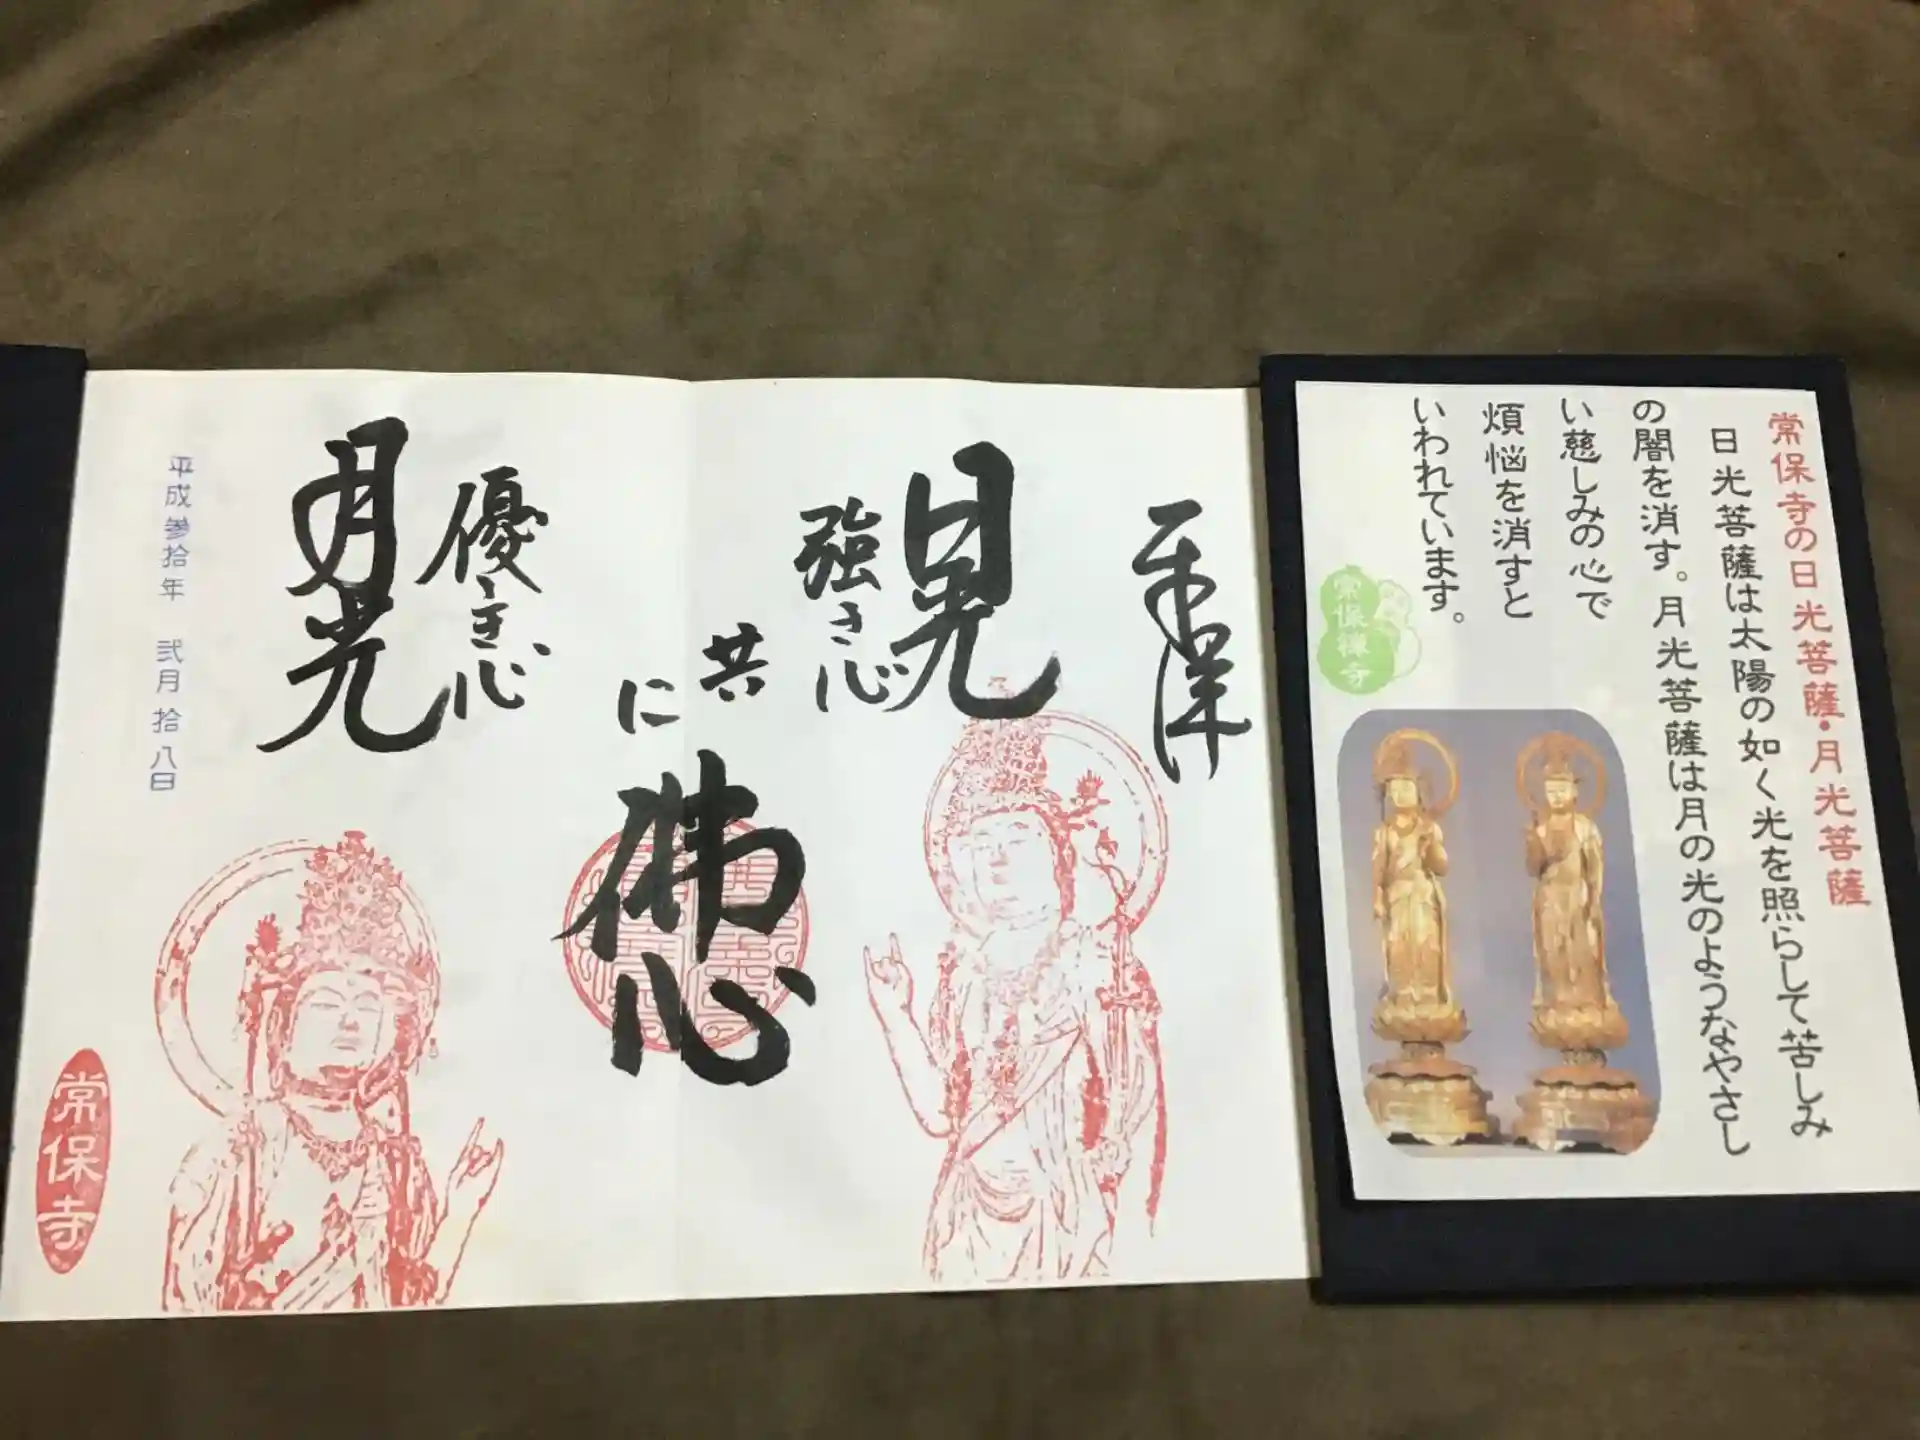 常保寺の日光菩薩・月光菩薩
日光菩薩は太陽の如く光を照らして苦しみ
の闇を消す。月光菩薩は月の光のようなやさし
い慈しみの心で
煩悩を消すと
いわれています。
常保禅寺
奉拝
日光
強き心
共
に
佛心
優き心
月光
平成参拾年 弐月拾八日
常保寺